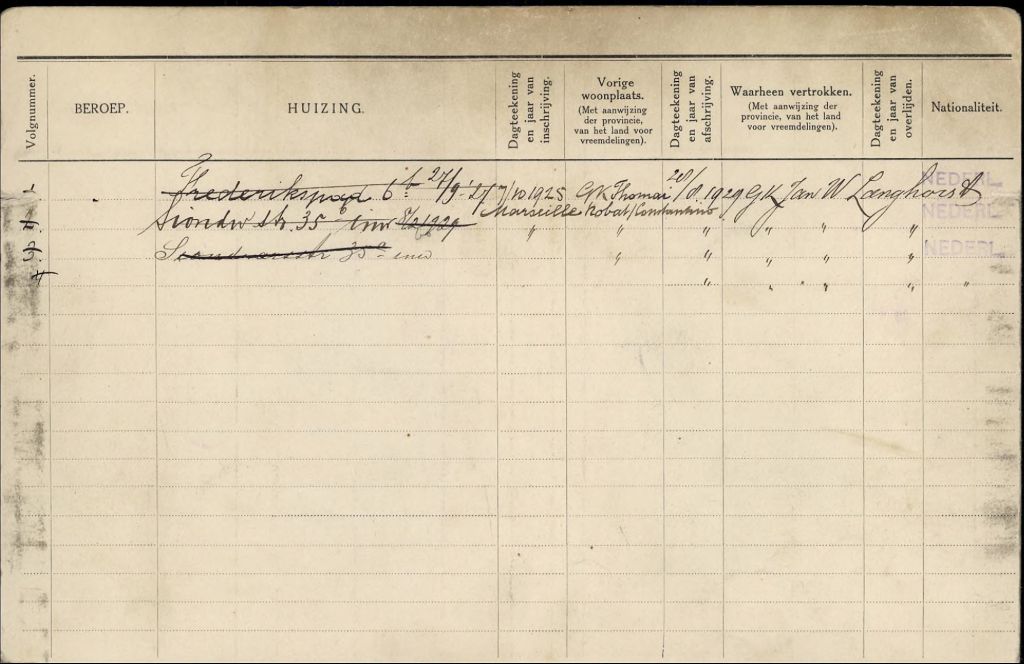 Volgnummer.
BEROEP.
HUIZING.
Dagteekening
en jaar van
inschrijving.
Vorige
woonplaats.
(Met aanwijzing
der provincie,
van het land voor
vreemdelingen).
Dagteekening
en jaar van
afschrijving.
Waarheen vertrokken.
(Met aanwijzing der
provincie, van het land
voor vreemdelingen).
Dagteekening
en jaar van
overlijden.
Nationaliteit.
1 Frederikspad 6 b 27/9 '27 7/10 1925 GK Thomai 20/8.1929 GK Jan W. Langhorst NEDERL.
2. str. 35 8/2/1929 Marseille NEDERL.
3. 35 a " " " " " NEDERL.
4 " " " " " "